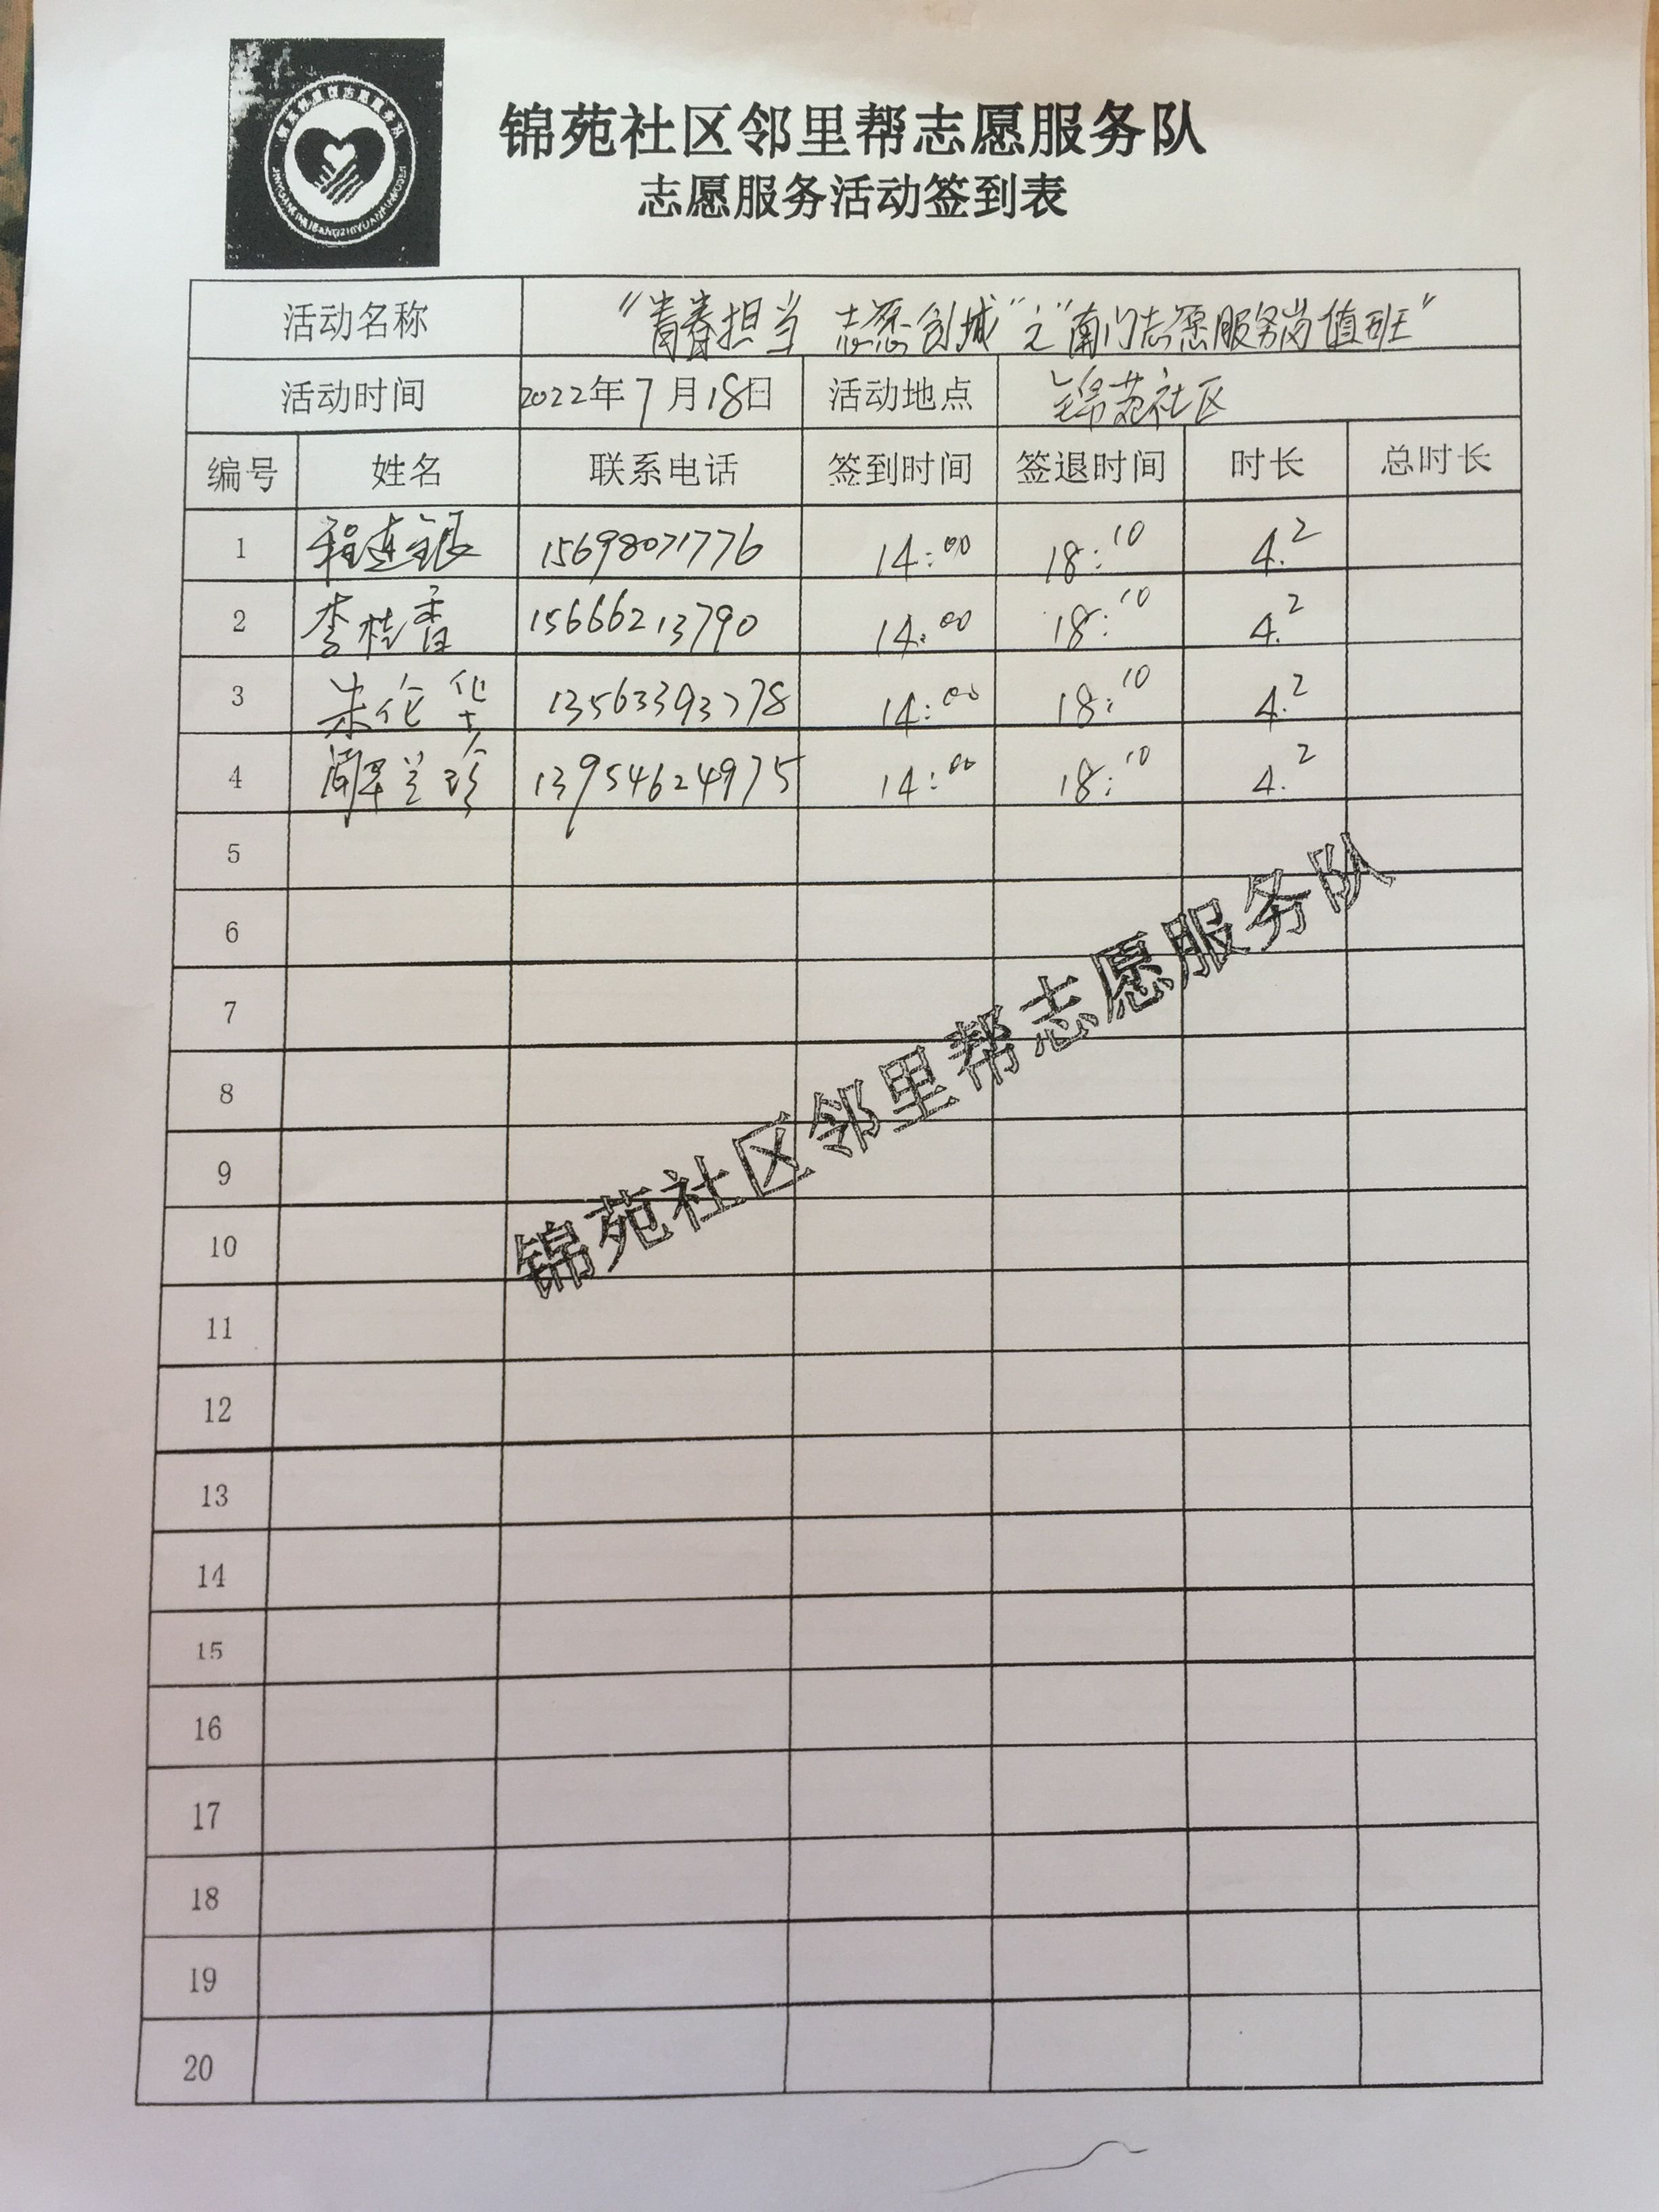 锦苑社区邻里帮志愿服务队
志愿服务活动签到表
活动名称 "青春担当 志愿创城"之"南门志愿服务岗值班"
活动时间 2022年7月18日 活动地点 锦苑社区
编号 姓名 联系电话 签到时间 签退时间 时长 总时长
1 程连银 15698071776 14:00 18:10 4.2
2 李桂香 15666213790 14:00 18:10 4.2
3 朱伦华 13563393778 14:00 18:10 4.2
4 兰珍 13954624975 14:00 18:10 4.2
5
6
7
8
9
10
11
12
13
14
15
16
17
18
19
20
锦苑社区邻里帮志愿服务队